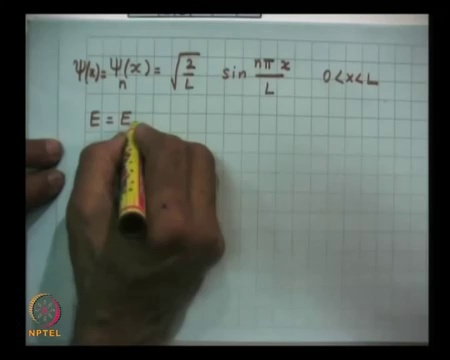 ψ(x) = ψn(x) = √(2/L) sin nπx/L 0 < x < L
E = E
NPTEL